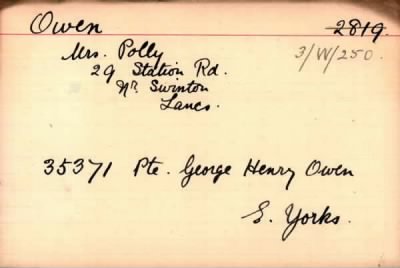 Owen 2819
Mrs. Polly 3/W/250.
29 Station Rd.
Nr. Swinton
Lancs.
35371 Pte. George Henry Owen
E. Yorks.